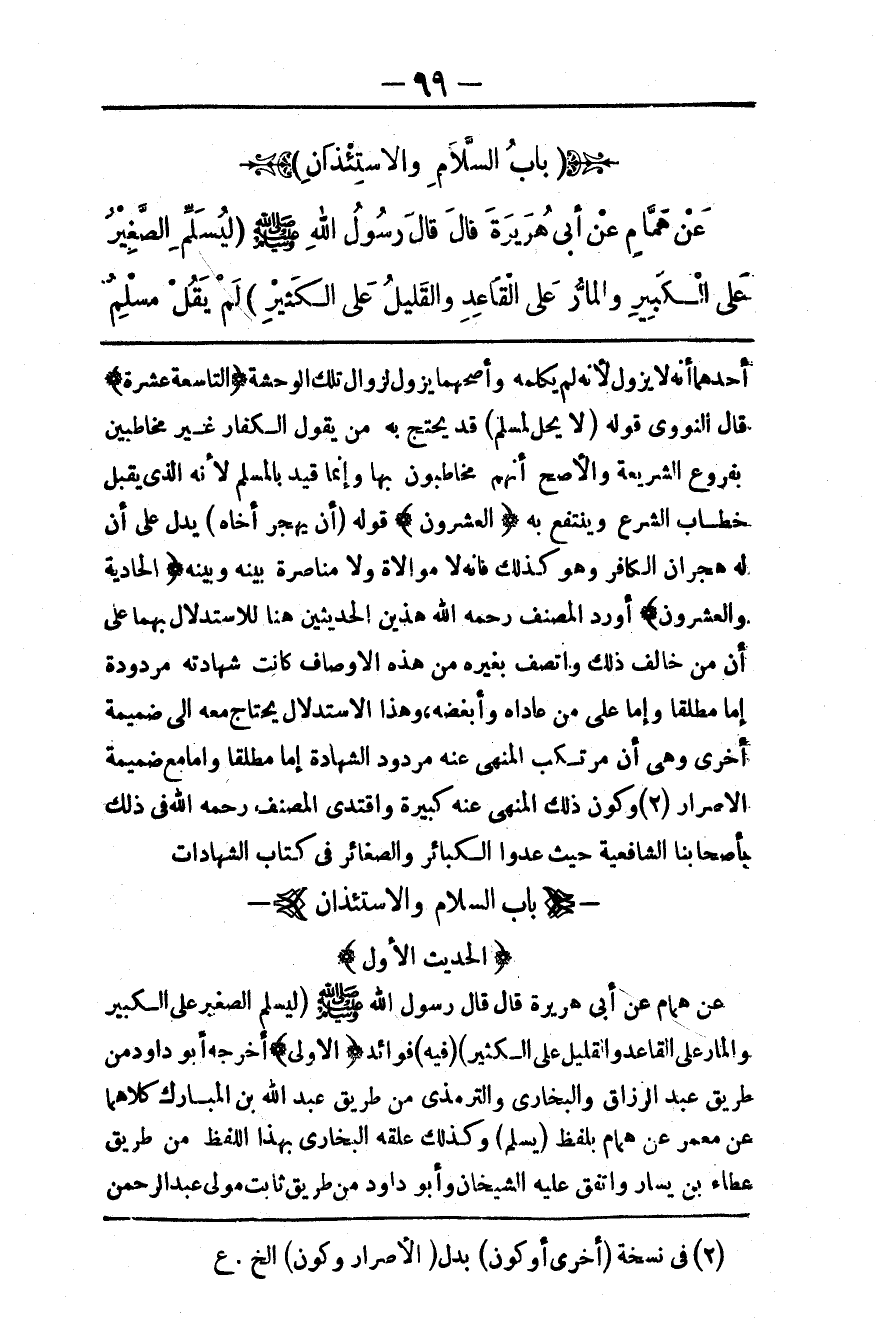 — ٩٩ —
( بابُ السَّلاَمِ والاستِئْذانِ )
عَنْ هَمَّامٍ عنْ أبى هُرَيرَةَ قالَ قالَ رَسُولُ اللهِ ﷺ (لِيُسَلِّمِ الصَّغِيْرُ
عَلى الْـكَبِيرِ والمَارُّ عَلى الْقَاعدِ والقَليلُ عَلى الـكَثيْرِ ) لَمْ يَقُلْ مسْلِمُ
أحدهما أنه لا يزول لأنه لم يكلمه وأصحهما يزول لزوال تلك الوحشة ﴿التاسعة عشرة﴾
قال النووى قوله (لا يحل لمسلم) قد يحتج به من يقول الـكفار غـير مخاطبين
بفروع الشريعة والأصح أنهم مخاطبون بها وإنما قيد بالمسلم لأنه الذى يقبل
خطـاب الشرع وينتفع به ﴿ العشرون ﴾ قوله (أن يهجر أخاه) يدل على أن
له هجران الـكافر وهو كـذلك فانه لا موالاة ولا مناصرة بينه وبينه ﴿ الحادية
والعشرون﴾ أورد المصنف رحمه الله هذين الحديثين هنا للاستدلال بهما على
أن من خالف ذلك واتصف بغيره من هذه الاوصاف كانت شهادته مردودة
إما مطلقا وإما على من عاداه وأبغضه، وهذا الاستدلال يحتاج معه الى ضميمة
أخرى وهى أن مرتـكب المنهى عنه مردود الشهادة إما مطلقا وامامع ضميمة
الاصرار (٢) وكون ذلك المنهى عنه كبيرة واقتدى المصنف رحمه الله فى ذلك
بأصحابنا الشافعية حيث عدوا الـكبائر والصغائر فى كـتاب الشهادات
— باب السلام والاستئذان —
﴿ الحديث الأول ﴾
عن همام عن أبى هريرة قال قال رسول الله ﷺ (ليسلم الصغير على الـكبير
والمار على القاعد والقليل على الـكثير) (فيه) فوائد ﴿ الاولى﴾ أخرجه أبو داود من
طريق عبد الرزاق والبخارى والترمذى من طريق عبد الله بن المبارك كلاهما
عن معمر عن همام بلفظ (يسلم) وكذلك علقه البخارى بهذا اللفظ من طريق
عطاء بن يسار واتفق عليه الشيخان وأبو داود من طريق ثابت مولى عبد الرحمن
(٢) فى نسخة (أخرى أوكون) بدل( الأصرار وكون) الخ . ع